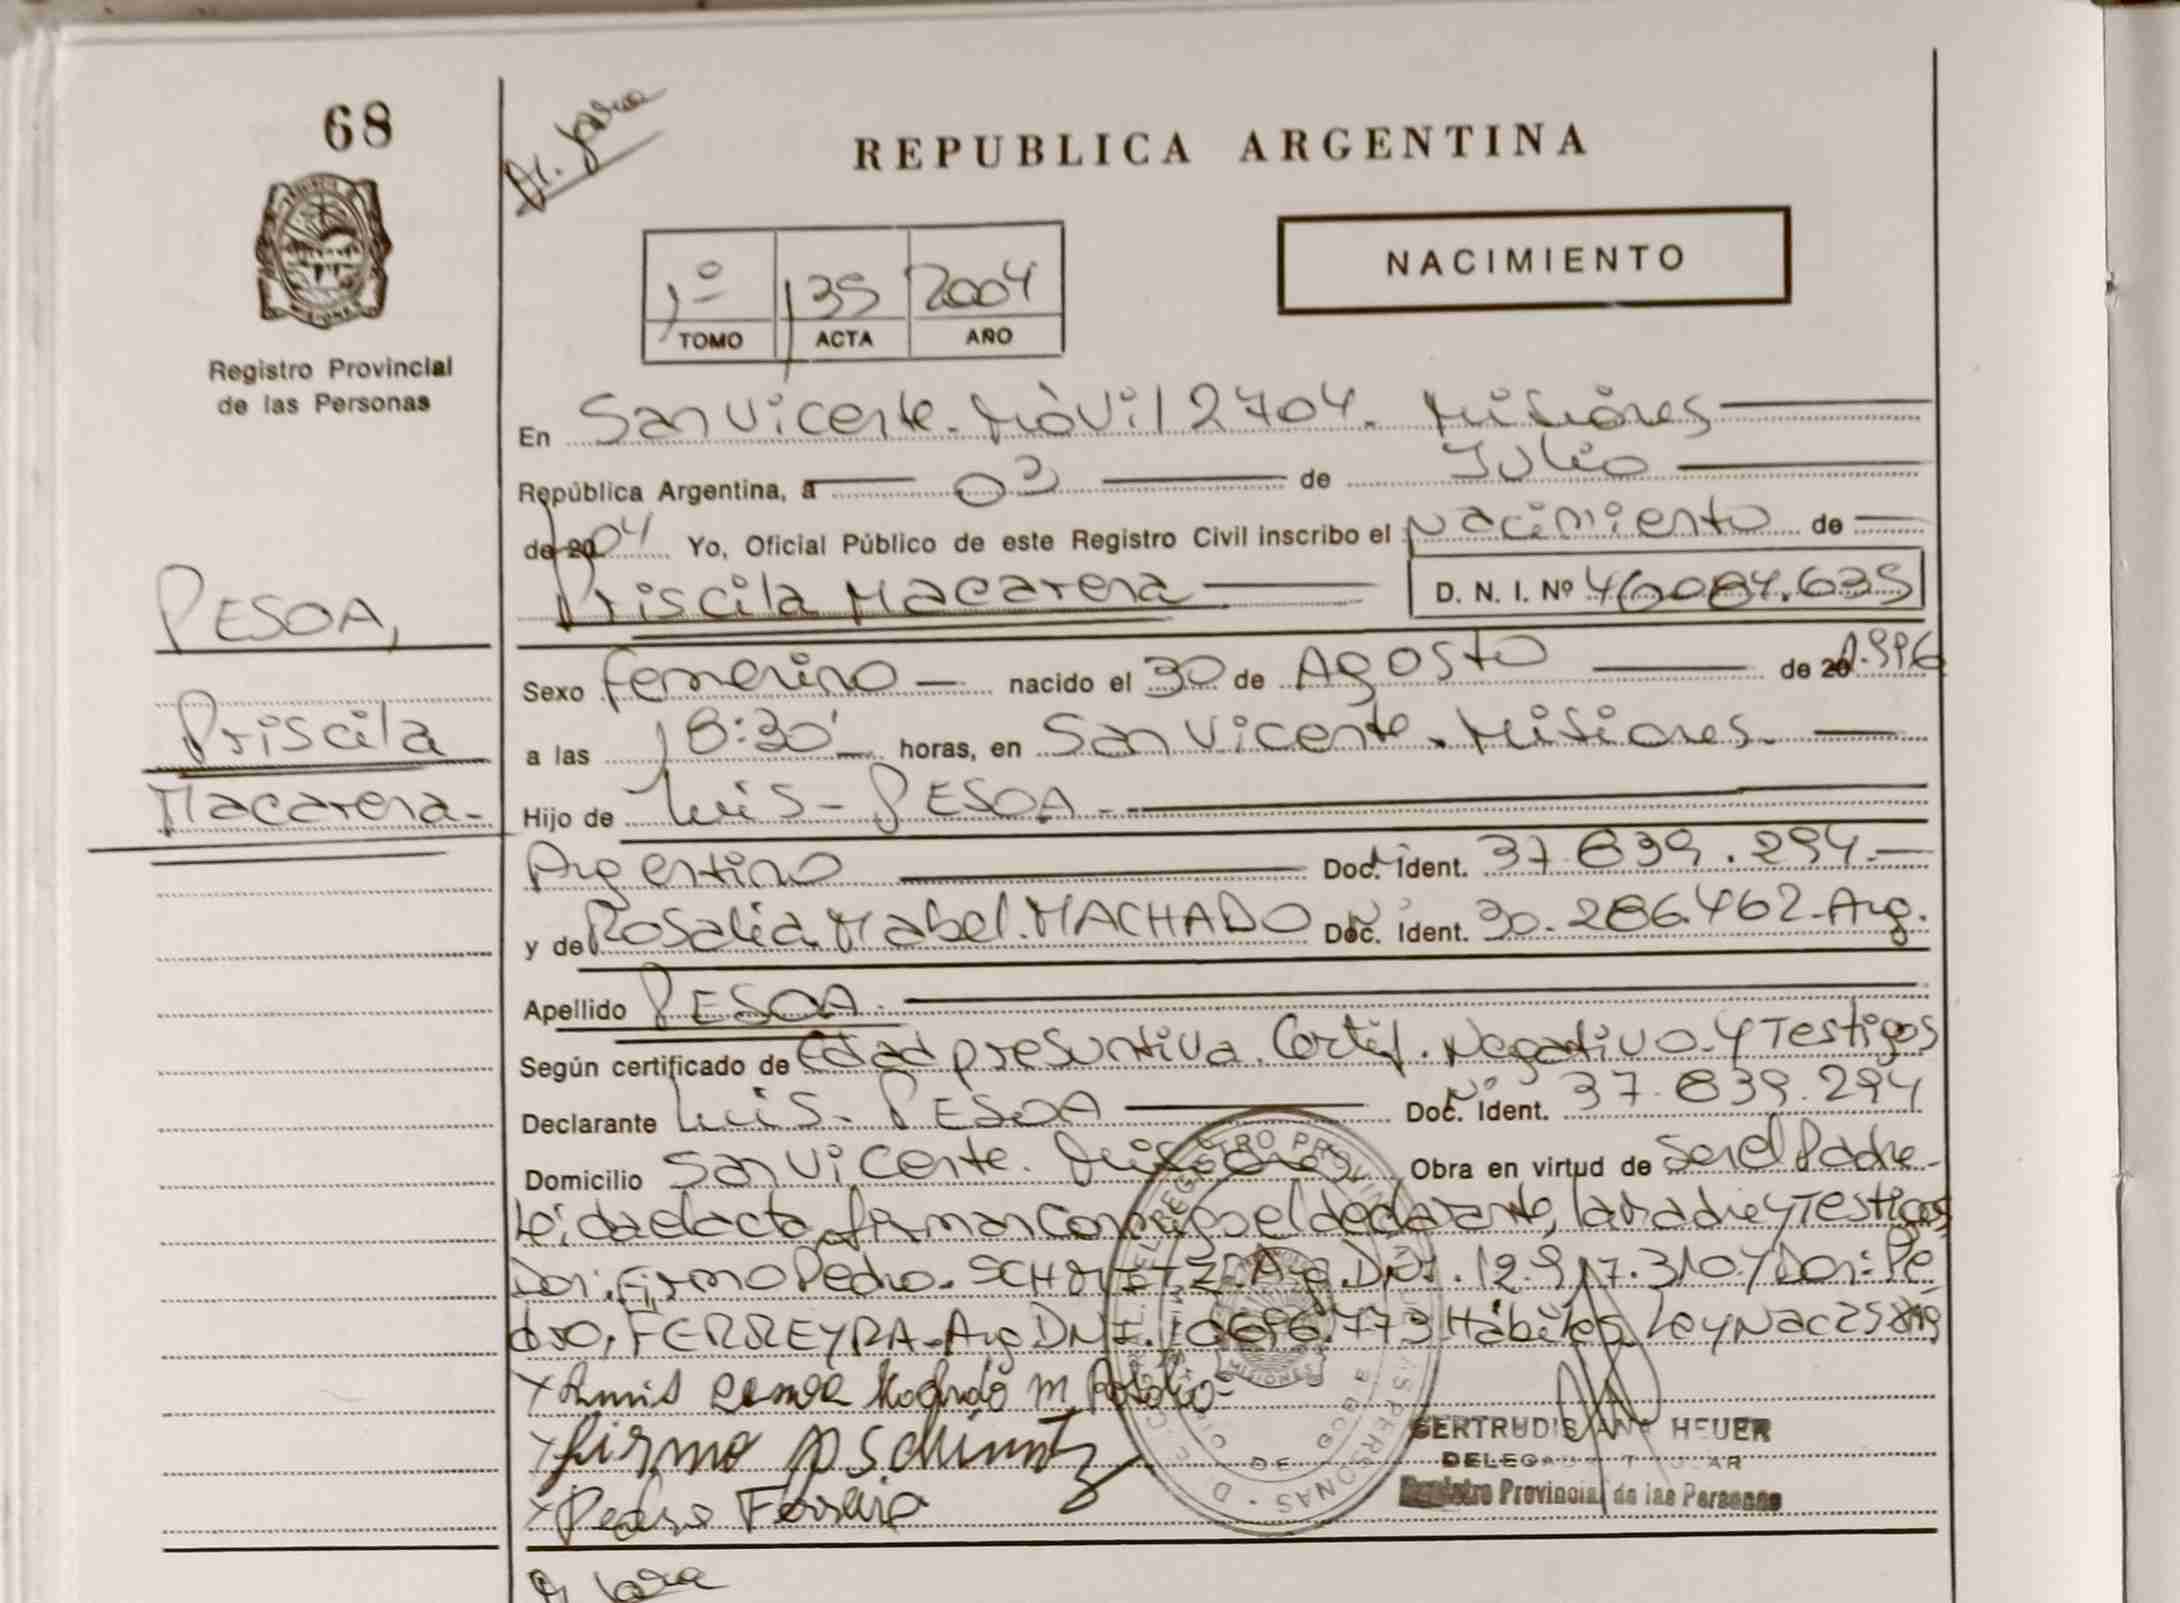 68
REPUBLICA ARGENTINA
NACIMIENTO
1º 135 2004
TOMO ACTA AÑO
Registro Provincial
de las Personas
En San Vicente. Móvil 2704. Misiones
República Argentina, a 03 de Julio
de 2004 Yo, Oficial Público de este Registro Civil inscribo el Nacimiento de
Priscila Macarena D. N. I. Nº 46084.635
PESOA,
Priscila
Macarena-
Sexo femenino - nacido el 30 de Agosto de 20 1.996
a las 18:30' horas, en San Vicente. Misiones.
Hijo de Luis - PESOA -
Argentino Doc. Ident. 37.839.294.-
y de Rosalia Mabel. MACHADO Doc. Ident. 30.286.462-Arg.
Apellido PESOA.
Según certificado de Edad presuntiva. Certif. Negativo-y Testigos
Declarante Luis - PESOA Doc. Ident. 37.839.294
Domicilio San Vicente. Misiones Obra en virtud de Ser el Padre-
Leida el acta, firman Conmigo el declarante, la Madre y Testigos
Don: Firmo Pedro. SCHMITZ. Arg. DNI. 12.917.310 y Don: Pe
dro, FERREYRA-Arg DNI. Hábiles Ley Nac
Machado M
firmo p Schimitz
Pedro Ferreira
GERTRUDIS ANA HEUER
Registro Provincial de las Personas
MISIONES